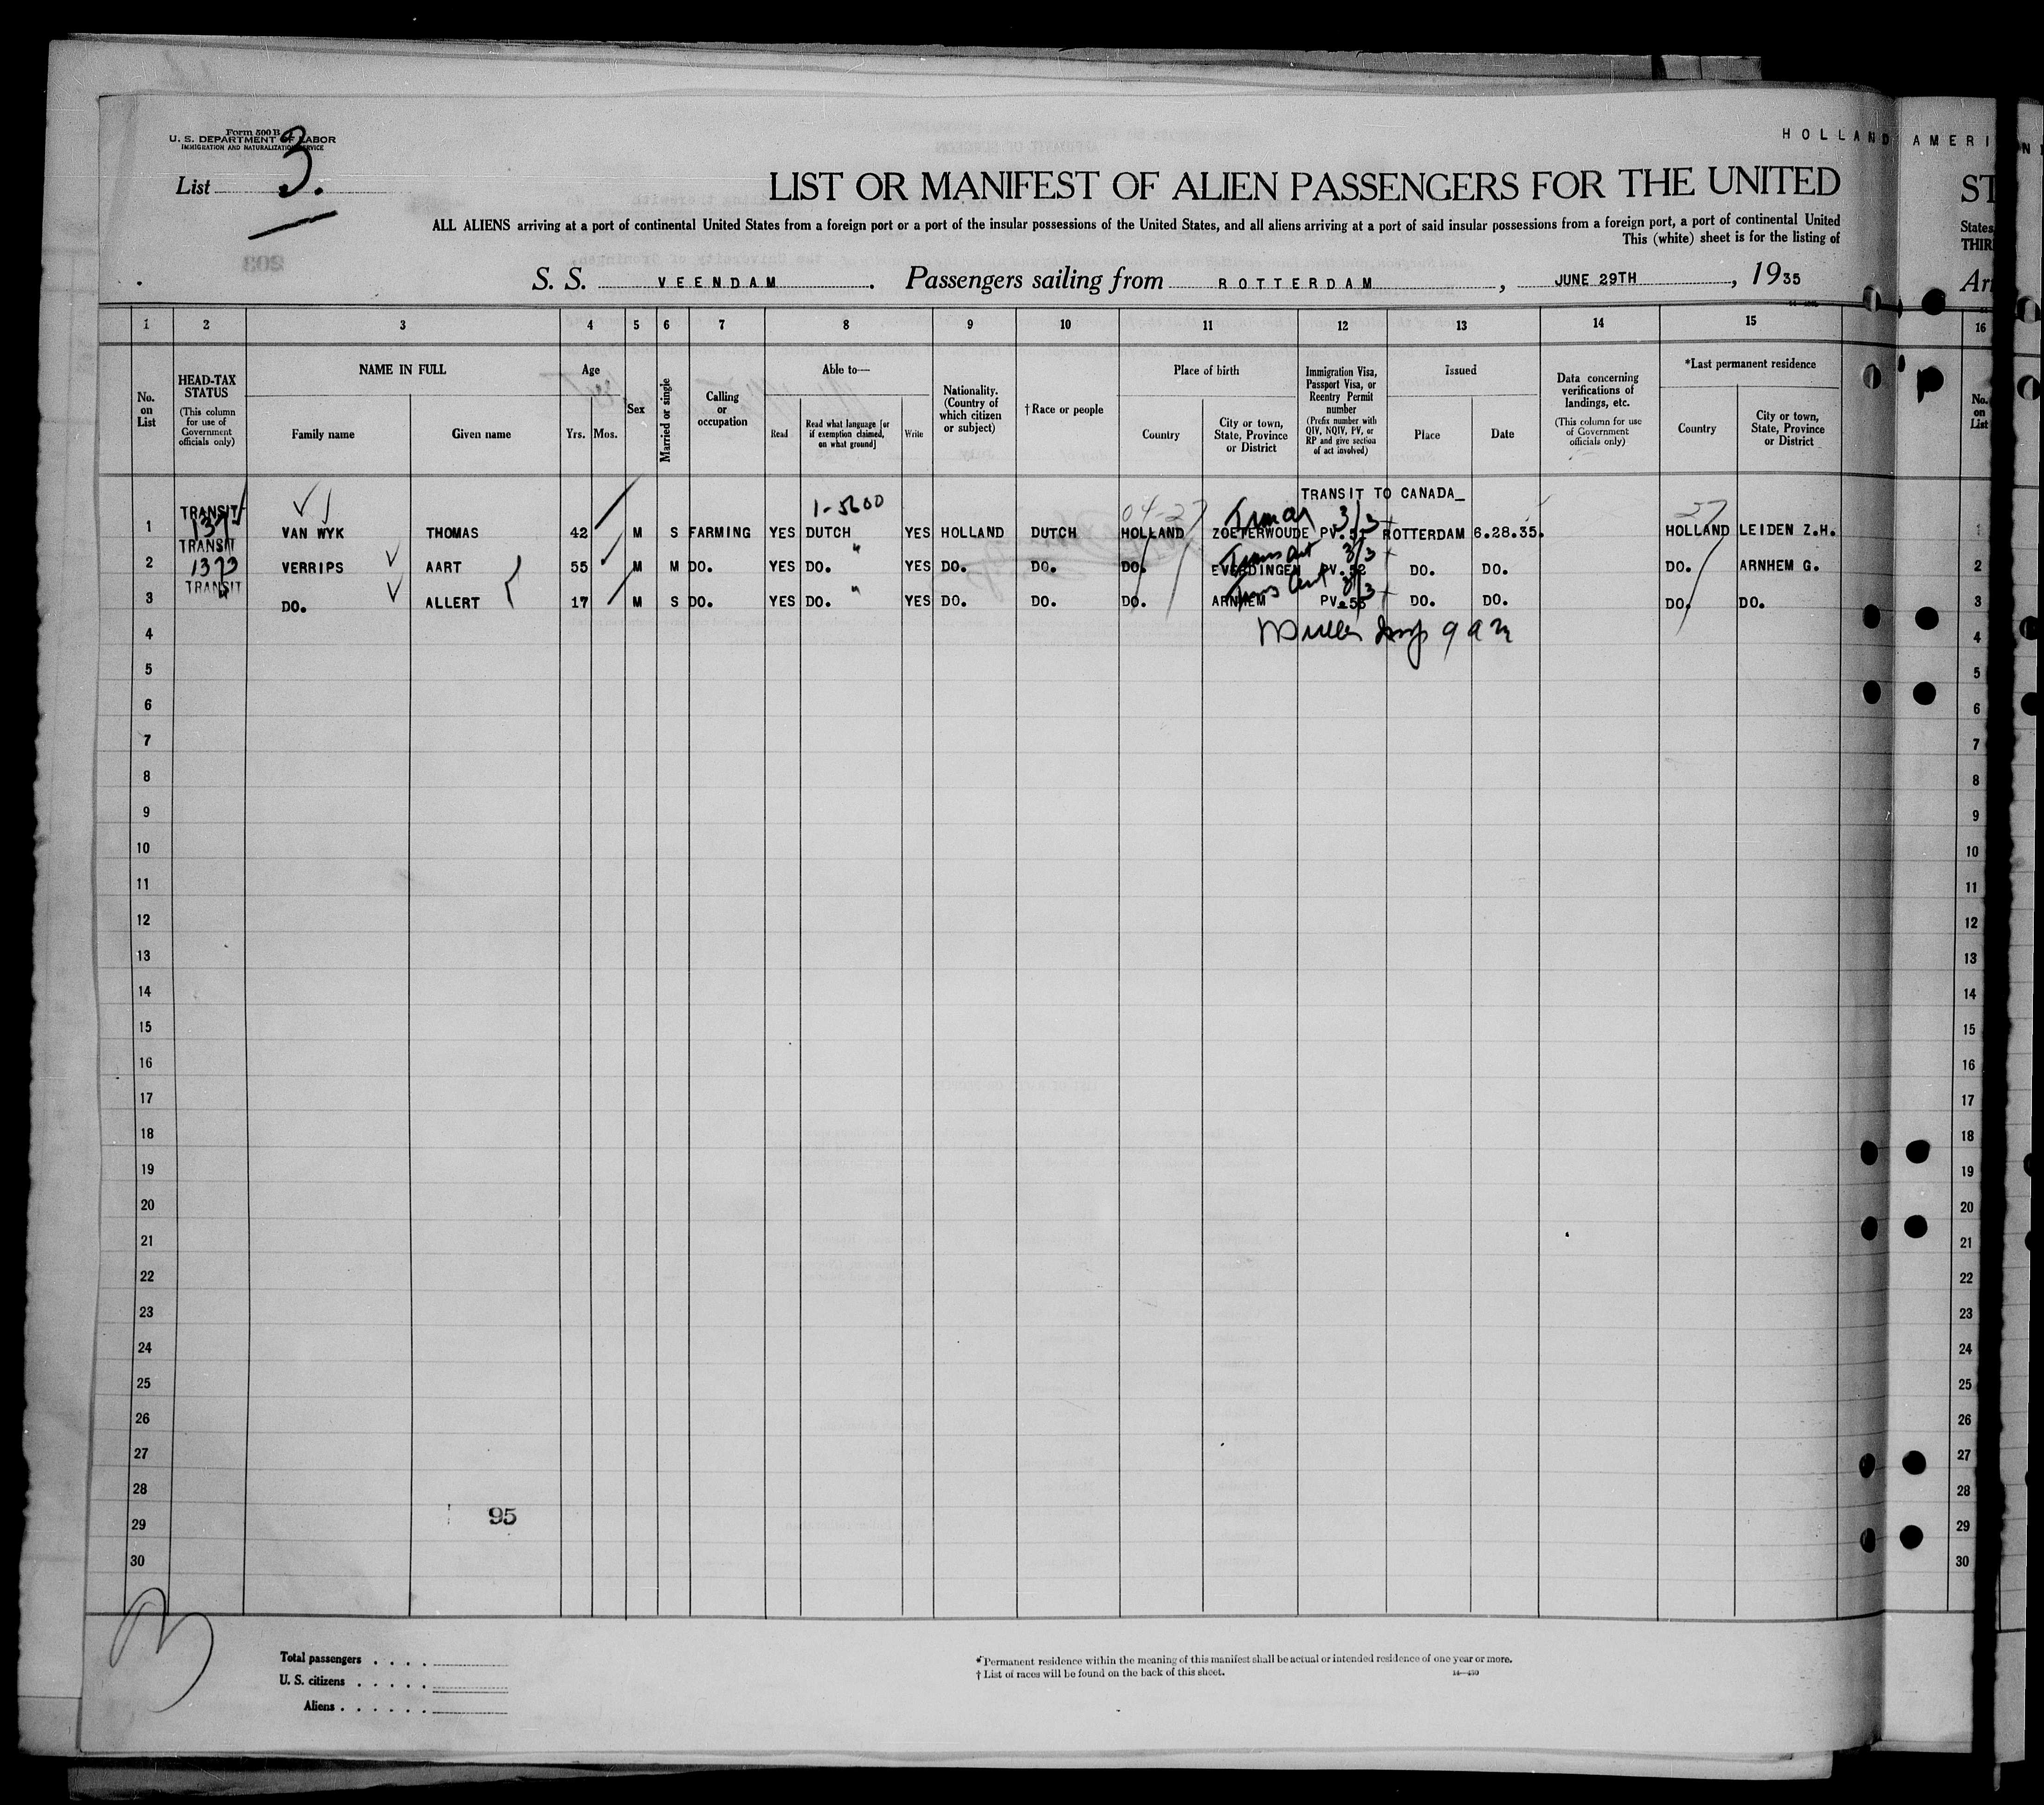 HOLLAND AMERI
Form 500 B
U. S. DEPARTMENT OF LABOR
IMMIGRATION AND NATURALIZATION SERVICE
List 3.
LIST OR MANIFEST OF ALIEN PASSENGERS FOR THE UNITED
ST
ALL ALIENS arriving at a port of continental United States from a foreign port or a port of the insular possessions of the United States, and all aliens arriving at a port of said insular possessions from a foreign port, a port of continental United
States
This (white) sheet is for the listing of
THIR
S. S. VEENDAM. Passengers sailing from ROTTERDAM, JUNE 29TH, 1935
Arr
1 2 3 4 5 6 7 8 9 10 11 12 13 14 15 16
No. on List
HEAD-TAX STATUS
(This column for use of Government officials only)
NAME IN FULL
Family name
Given name
Age
Yrs. Mos.
Sex
Married or single
Calling or occupation
Able to—
Read
Read what language [or if exemption claimed, on what ground]
Write
Nationality. (Country of which citizen or subject)
†Race or people
Place of birth
Country
City or town, State, Province or District
Immigration Visa, Passport Visa, or Reentry Permit number
(Prefix number with QIV, NQIV, PV, or RP and give section of act involved)
Issued
Place
Date
Data concerning verifications of landings, etc.
(This column for use of Government officials only)
*Last permanent residence
Country
City or town, State, Province or District
No. on List
1-5600
TRANSIT TO CANADA_
TRANSIT
1 VAN WYK THOMAS 42 M S FARMING YES DUTCH YES HOLLAND DUTCH HOLLAND ZOETERWOUDE PV.51 3/3 ROTTERDAM 6.28.35. HOLLAND LEIDEN Z.H. 1
TRANSIT
2 1373 VERRIPS AART 55 M M DO. YES DO. " YES DO. DO. DO. EVERDINGEN PV.52 3/3 DO. DO. DO. ARNHEM G. 2
TRANSIT
3 DO. ALLERT 17 M S DO. YES DO. " YES DO. DO. DO. ARNHEM PV.53 3/3 DO. DO. DO. DO. 3
4 4
5 5
6 6
7 7
8 8
9 9
10 10
11 11
12 12
13 13
14 14
15 15
16 16
17 17
18 18
19 19
20 20
21 21
22 22
23 23
24 24
25 25
26 26
27 27
28 28
95
29 29
30 30
Total passengers . . . .
U. S. citizens . . . . .
Aliens . . . . . .
*Permanent residence within the meaning of this manifest shall be actual or intended residence of one year or more.
†List of races will be found on the back of this sheet.
14—430